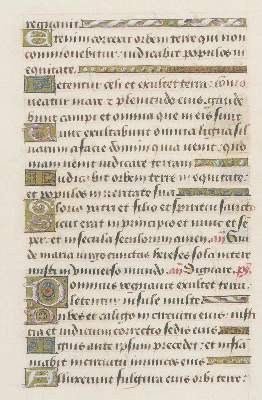 regnavit
Etenim correxit orbem terre qui non
commovebitur: iudicabit populos in
equitate
Letentur celi et exultet terra: com̄o
veatur mare et plenitudo eius: gaude
bunt campi et omnia que in eis sunt
Tunc exultabunt omnia ligna sil
varum a facie domini quia venit: quo
niam venit iudicare terram
Iudicabit orbem terre in equitate:
et populos in veritate sua
Gloria patri et filio et spiritui sancto
Sicut erat in principio et nunc et sem
per: et in secula seculorum amen. an̄
de maria virgo cunctas hereses sola interē
misti in universo mundo. an̄ Dignare. ps.
Dominus regnavit exultet terra:
letentur insule multe
Nubes et caligo in circuitu eius: iusti
cia et iudicium correctio sedis eius
Ignis ante ipsum precedet: et inflā
mabit in circuitu inimicos eius
Illuxerunt fulgura eius orbi terre: